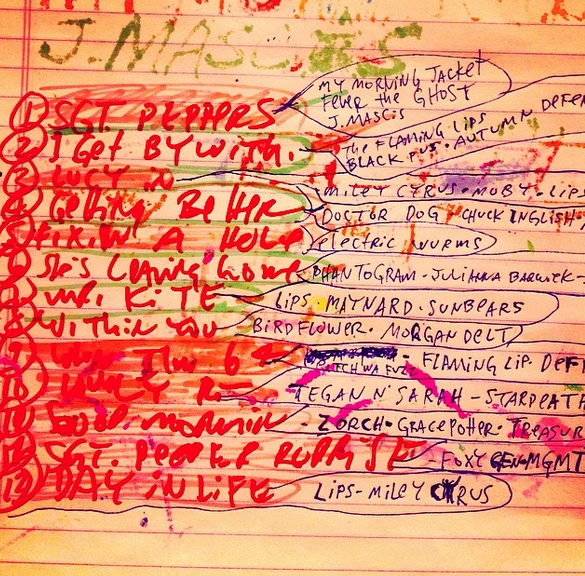 J. MASCIS
MY MORNING JACKET
FEVER the GHOST
J. MASCIS
① SGT. PEPPERS
② I Get BY WITH.
THE FLAMING LIPS
BLACK PUS. AUTUMN DEFE
③ LUCY in
MILEY CYRUS. MOBY. LIPS
④ Getting BEttER
DOCTOR DOG CHUCK INGLISH,
5 FIXIN A HOLE
electric wurms
6 She's LEAVING home
PHANTOGRAM - JULIANNA BARWICK-
7 MR. KITE
LIPS. MAYNARD. SUNBEARS
8 WITHIN YOU
BIRDFLOWER. MORGAN DELT
9 When I'm 6
- FLAMING LIP. DEF
10 LOVELY RI
TEGAN N' SARAH - STARDEATH
11 GOOD MORNIN
- ZORCH - GRACE POTTER. TREASUR
12 SGT. PEPPER REPRISE
FOXY GEN-MGMT
13 DAY IN LIFE
LIPS - MILEY CYRUS